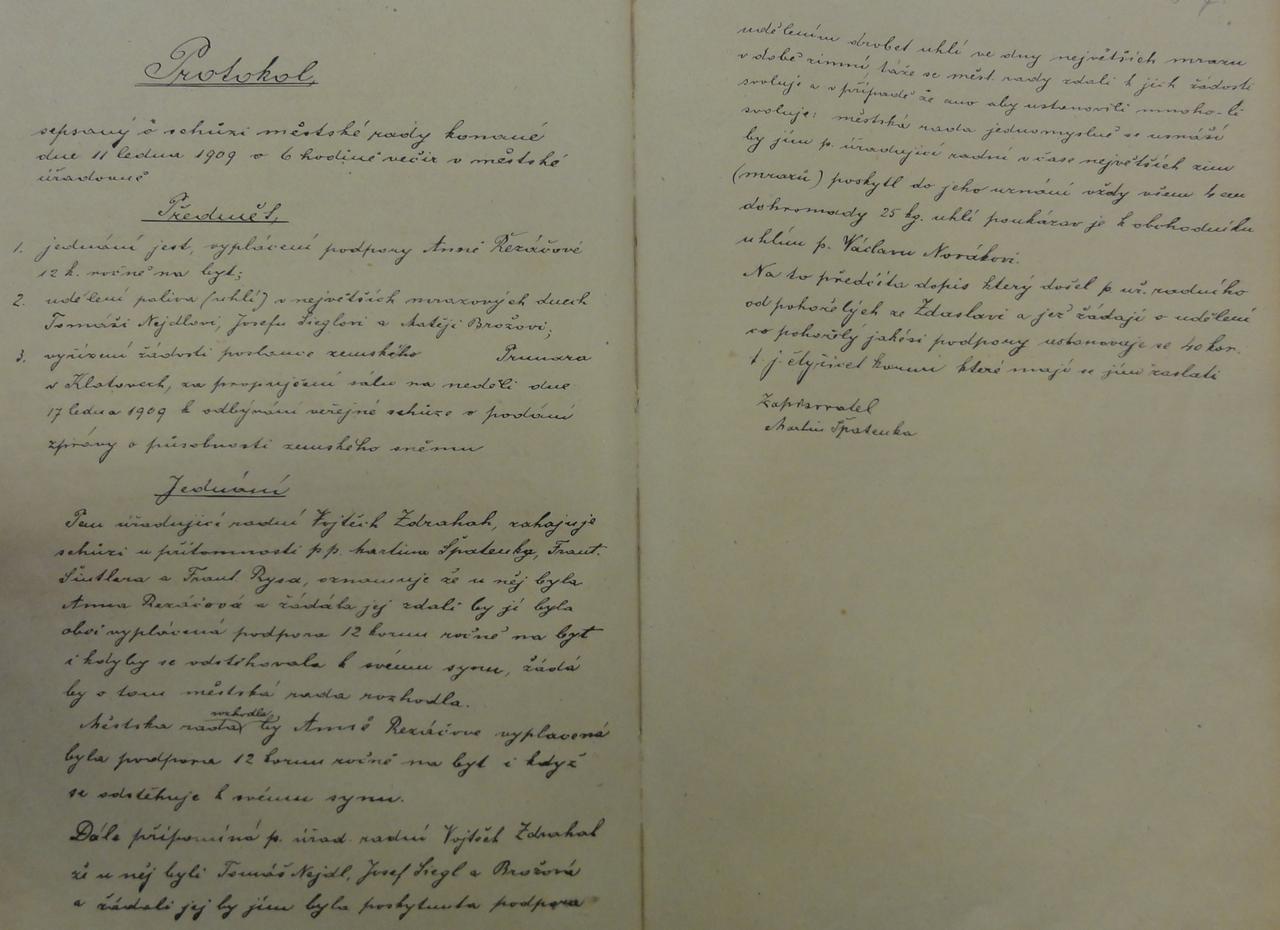 Protokol,
sepsaný o schůzi městské rady konané
dne 11 ledna 1909 o 6 hodině večír v městské
úřadovně
Předmět,
1. jednání jest, vyplácení podpory Anně Řezáčové
12 k. ročně na byt;
2. udělení paliva (uhlí) v největších mrazových dnech
Tomáši Nejdlovi, Josefu Sieglovi a Matěji Brožovi;
3. vyřízení žádosti poslance zemského Prunara
v Klatovech, za propujčení sálu na neděli dne
17 ledna 1909 k odbývání veřejné schůze o podání
zprávy o působnosti zemského sněmu
Jednání
Pan úřadující radní Vojtěch Zdrahal, zahajuje
schůzi u přítomnosti p.p. Martina Špatenky, Frant.
a Frant Rysa, oznamuje že u něj byla
Anna Rezáčová a žádála jej zdali by jí byla
obcí vyplácená podpora 12 korun ročně na byt
i kdyby se odstěhovala k svému synu, žádá
by o tom městská rada rozhodla.
Městska rada rozhodla by Anně Rezáčove vyplacená
byla podpora 12 korun ročně na byt i když
se odstěhuje k svému synu.
Dále připomíná p. úřad. radní Vojtěch Zdrahal
že u něj byli Tomáš Nejdl, Josef Siegl a Brožová
a žádali jej by jím byla poskytnuta podpora
udělením drobet uhlí ve dny největších mrazu
v době zimní, táže se měst. rady zdali k jich žádosti
svoluje a v případě že ano aby ustanovili mnoho-li
svoluje; městská rada jednomyslně se usnáší
by jím p. úřadující radní v čase největších zim
(mrazů) poskytl do jeho uznání vždy všem
dohromady 25 kg. uhlí poukázav je k obchodníku
uhlím p. Václavu Novákovi.
Na to předčíta dopis který došel p. uř. radního
od pohořelých ze Zdaslavi a jež žádají o udělení
co pohořelý jakési podpory ustanovuje se 40 kor.
t. j. čtyřicet korun které mají se jím zaslati
Zapisovatel
Martin Špatenka